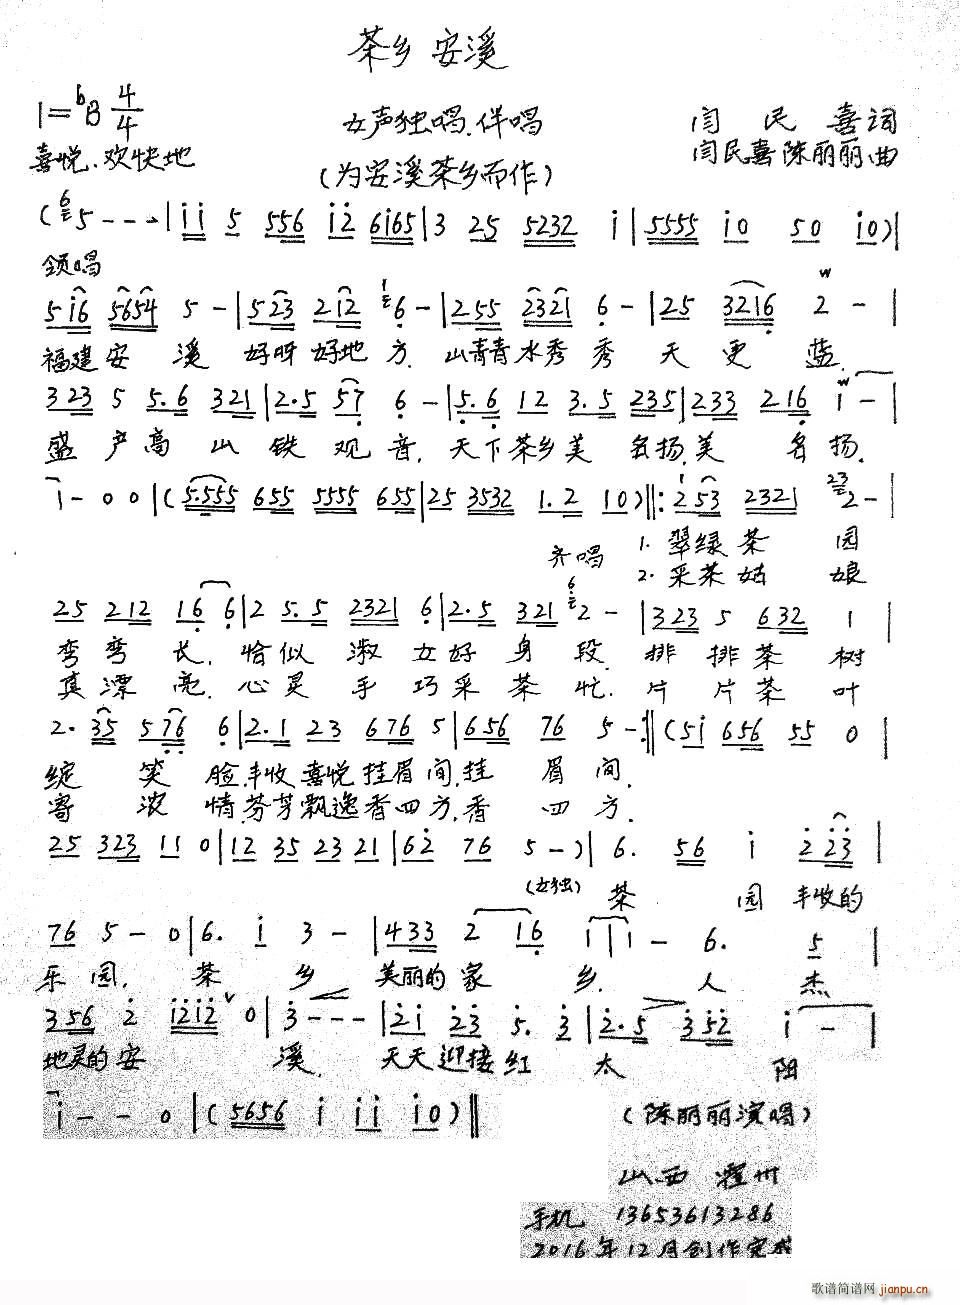 茶乡 安溪
1=bB 4/4
女声独唱.伴唱
闫 民 喜 词
喜悦.欢快地
闫民喜 陈丽丽 曲
(为安溪茶乡而作)
(6 5---|i i 5 556 i2 6i65|3 25 5232 i|5555 i0 50 i0)|
领唱
5i6 5654 5-|523 212 1 6-|255 2321 6-|25 3216 2-|
福建安 溪 好呀好地 方.山青青水秀 秀 天 更 蓝.
323 5 5.6 321|2.5 57 6-|5.6 12 3.5 235|233 216 i-|
盛 产高 山 铁 观 音.天下茶乡美 名扬.美 名 扬.
i-00|(5.555 655 5555 655|25 3532 1.2 10)‖:253 2321 23 2-|
1. 翠绿 茶 园
齐唱
2. 采茶 姑 娘
25 212 16 6|2 5.5 2321 6|2.5 321 6 2-|323 5 632 1|
弯 弯 长.恰似 淑 女好 身 段.排 排茶 树
真 漂 亮.心灵 手 巧采 茶 忙.片 片茶 叶
2. 35 576 6|2.1 23 676 5|656 76 5-:‖(5i 656 55 0|
绽 笑 脸.丰收喜悦挂眉间.挂 眉 间.
寄 浓 情.芬芳飘逸香四方.香 四 方.
25 323 11 0|12 35 23 21|62 76 5-)|6. 56 i 223|
(女独) 茶 园 丰收的
76 5-0|6. i 3-|433 2 16|111- 6. 5|
乐园. 茶 乡 美丽的家 乡. 人 杰
356 2 i2i2 v 0|3---|2i 23 5.3|2.5 352 i-|
地灵的安 溪. 天天迎接红 太 阳
i--0|(5656 i ii i0)‖
(陈丽丽演唱)
山西 霍州
手机 13653613286
2016年12月创作完成
歌谱简谱网 jianpu.cn